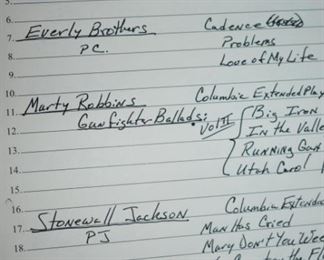 5.
6.
7. Everly Brothers Cadence
8. PC. Problems
9. Love of My Life
10.
11. Marty Robbins Columbia Extended Play
12. Gunfighter Ballads: Vol II Big Iron
13. In the Valle
14. Running Gun
15. Utah Carol
16.
17. Stonewall Jackson Columbia Extended
18. PJ Man Has Cried
Mary Don't You Wee